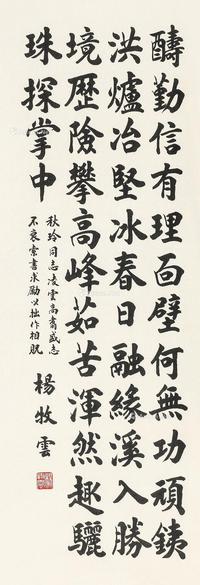 酬勤信有理面壁何無功頑鉄
洪爐冶堅冰春日融緣溪入勝
境歷險攀高峰茹苦渾然趣驪
珠探掌中
秋玲同志凌雲高翥盛志
不衰索書求勵以拙作相貺
楊牧雲